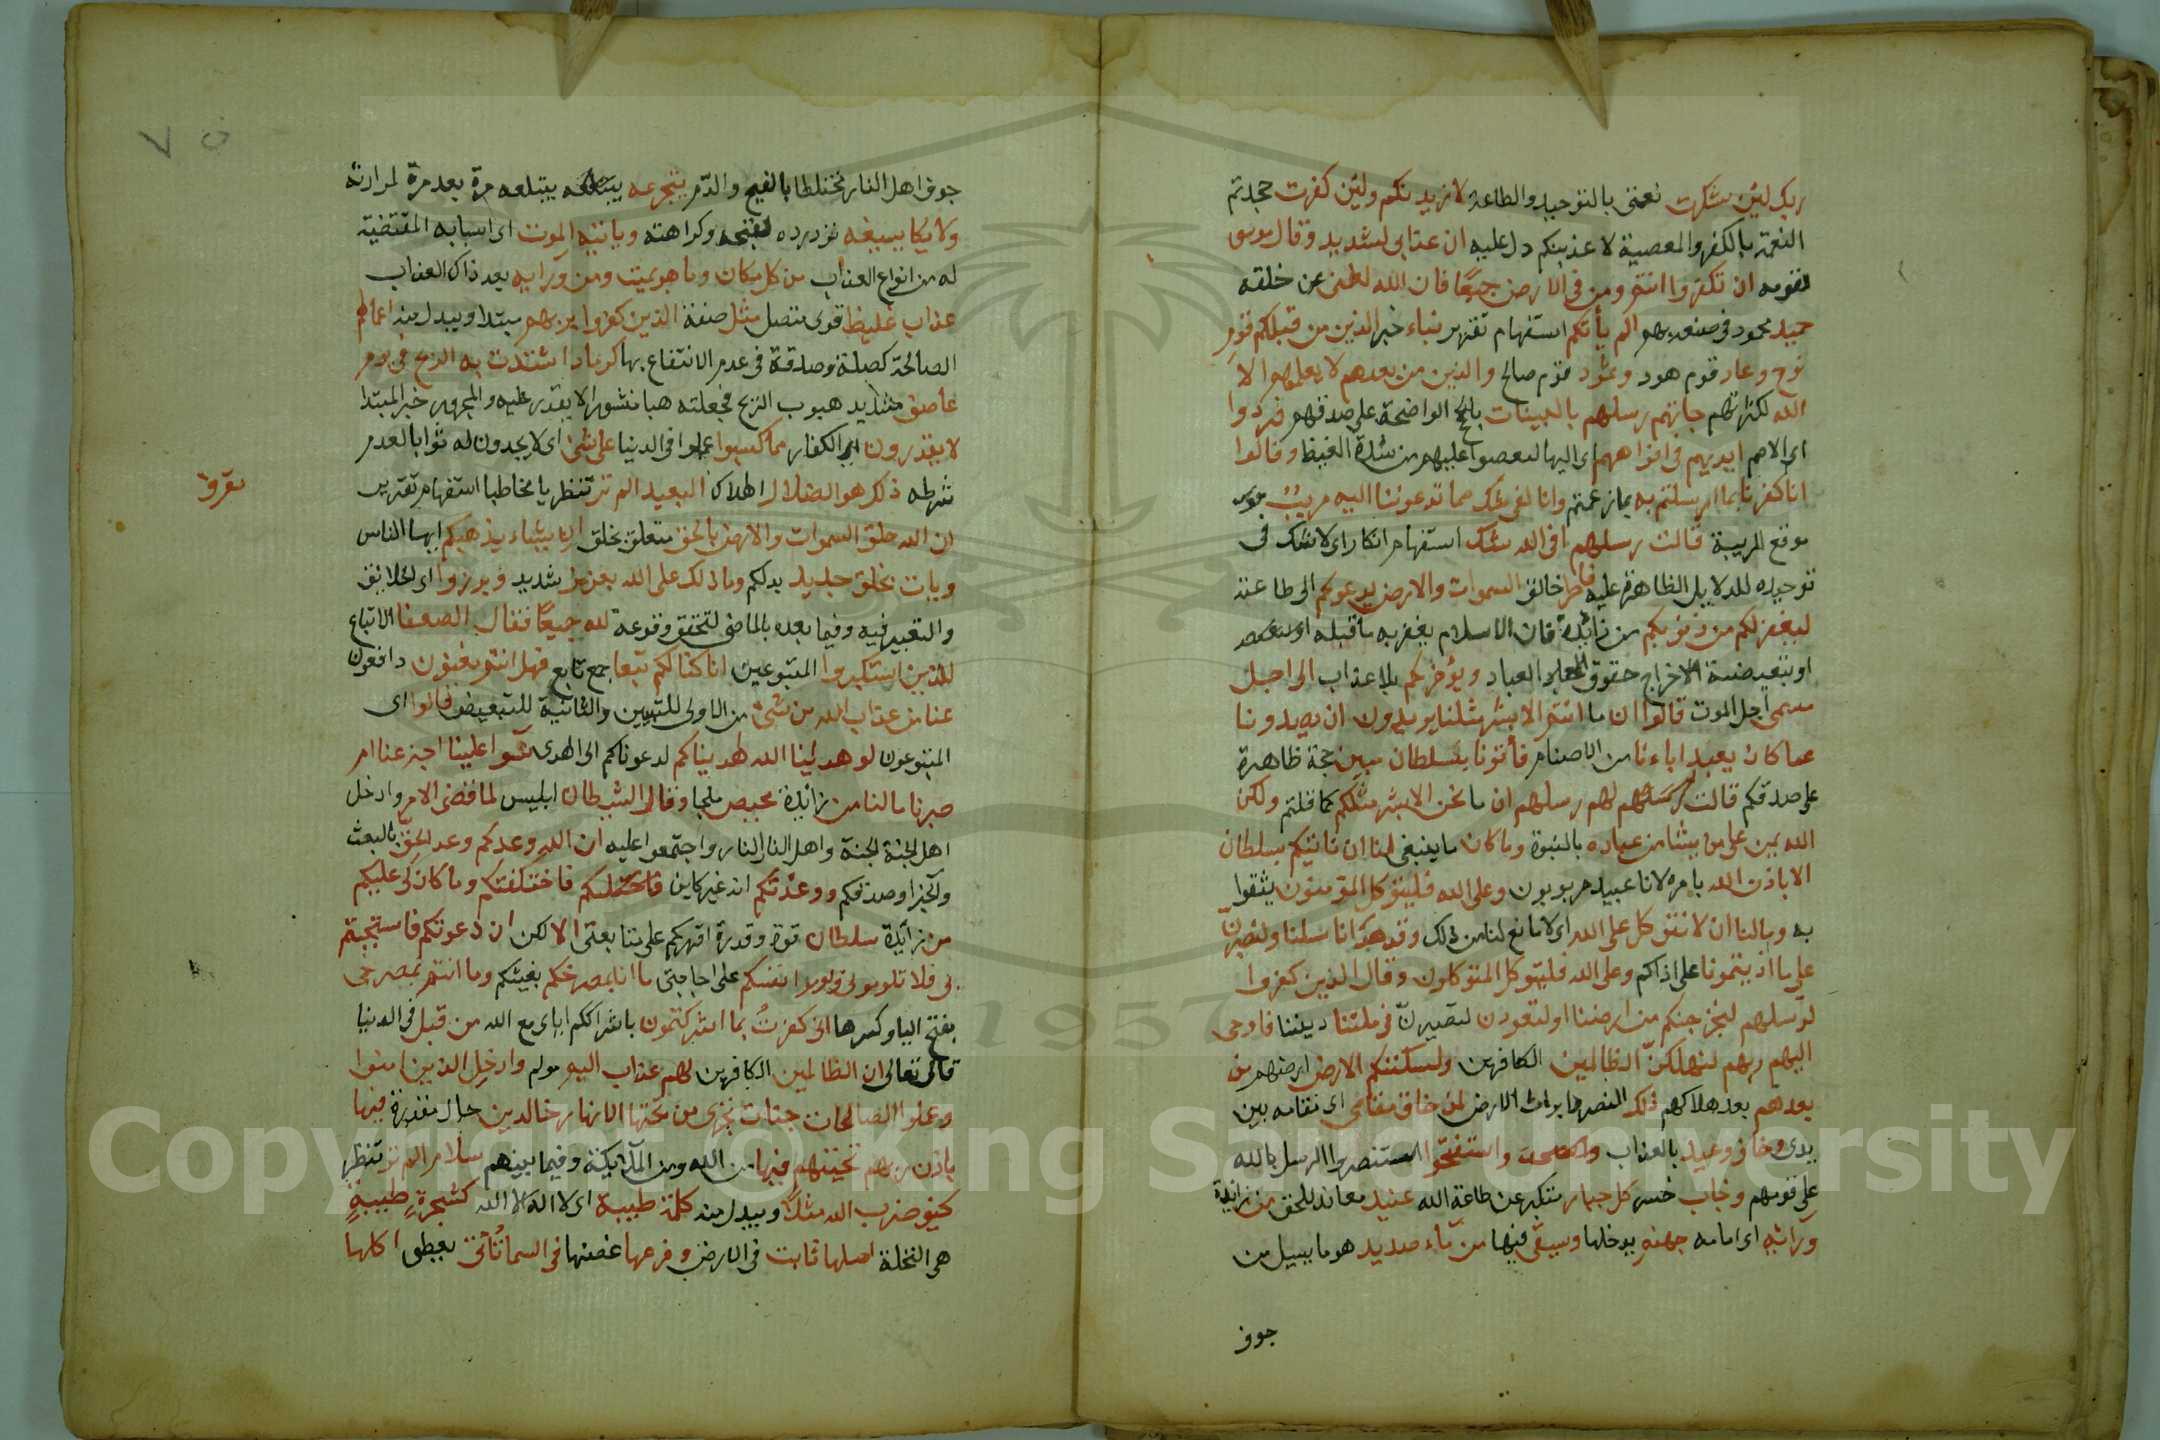 ربك لئن شكرتم نعمتى بالتوحيد والطاعة لازيدنكم ولئن كفرتم جحدتم
النعمة بالكفر والمعصية لاعذبنكم دل عليه ان عذابى لشديد وقال موسى
لقومه ان تكفروا انتم ومن فى الارض جميعا فان الله لغنى عن خلقه
حميد محمود فى صنعه بهم الم يأتكم استفهام تقرير نباء خبر الذين من قبلكم قوم
نوح وعاد قوم هود وثمود قوم صالح والذين من بعدهم لا يعلمهم الا
الله لكثرتهم جاتهم رسلهم بالبينات بالحجج الواضحة على صدقهم فردوا
اى الامم ايديهم فى افواههم اى اليها ليعضوا عليهم من شدة الغيظ وقالوا
انا كفرنا بما ارسلتم به بما زعمتم وانا لفى شك مما تدعوننا اليه مريب
موقع الريبة قالت رسلهم افى الله شك استفهام انكار اى لا شك فى
توحيده للدلايل الظاهرة عليه فاطر خالق السموات والارض يدعوكم الى طاعته
ليغفر لكم من ذنوبكم من زائدة فان الاسلام يغفر به ما قبله
او تبعيضية لاخراج حقوق العباد ويؤخركم بلا عذاب الى اجل
مسمى اجل الموت قالوا ان ما انتم الا بشر مثلنا يريدون ان تصدونا
عما كان يعبد اباءنا من الاصنام فأتونا بسلطان مبين حجة ظاهرة
على صدقكم قالت لهم رسلهم ان ما نحن الا بشر مثلكم كما قلتم ولكن
الله يمن على من يشا من عباده بالنبوة وما كان ما ينبغى لنا ان ناتيكم بسلطان
الا باذن الله بامره لانا عبيد مربوبون وعلى الله فليتوكل المؤمنون يثقوا
به وما لنا ان لا نتوكل على الله اى لا مانع لنا من ذلك وقد هدانا سبلنا ولنصبرن
على ما اذيتمونا على اذاكم وعلى الله فليتوكل المتوكلون وقال الذين كفروا
لرسلهم لنخرجنكم من ارضنا او لتعودن لتصيرن فى ملتنا ديننا فاوحى
اليهم ربهم لنهلكن الظالمين الكافرين ولنسكننكم الارض ارضهم من
بعدهم بعد هلاكهم ذلك النصر وايراث الارض لمن خاف مقامى اى مقامه بين
يدى وخاف وعيد بالعذاب واستفتحوا استنصروا الرسل بالله
على قومهم وخاب خسر كل جبار متكبر عن طاعة الله عنيد معاند للحق من زائدة
ورائه اى امامه جهنم يدخلها ويسقى فيها من ماء صديد هو ما يسيل من
جوف
جوف اهل النار مختلطا بالقيح والدم يتجرعه يبتلعه مرة بعد مرة لمرارته
ولا يكاد يسيغه يزدرده لقبحه وكراهته وياتيه الموت اى اسبابه المقتضية
له من انواع العذاب من كل مكان وما هو بميت ومن ورايه بعد ذاك العذاب
عذاب غليظ قوى متصل مثل صفة الذين كفروا بربهم مبتدا ويبدل منه اعمالهم
الصالحة كصلة وصدقة فى عدم الانتفاع بها كرماد اشتدت به الريح فى يوم
عاصف شديد هبوب الريح فجعلته هبا منثورا لا يقدر عليه والمجرور خبر المبتدا
لا يقدرون اى الكفار مما كسبوا عملوا فى الدنيا على شئ اى لا يجدون له ثوابا لعدم
شرطه ذلك هو الضلال الهلاك البعيد الم تر تنظر يا مخاطبا استفهام تقرير
ان الله خلق السموات والارض بالحق متعلق بخلق ان يشاء يذهبكم ايها الناس
ويات بخلق جديد بدلكم وما ذلك على الله بعزيز شديد وبرزوا اى الخلائق
والتعبير فيه وفيما بعده بالماضى لتحقق وقوعه لله جميعا فقال الضعفا الاتباع
للذين استكبروا المتبوعين انا كنا لكم تبعا جمع تابع فهل انتم مغنون دافعون
عنا من عذاب الله من شئ من الاولى للتبيين والثانية للتبعيض قالوا اى
المتبوعون لو هدينا الله لهديناكم لدعوناكم الى الهدى سوا علينا اجزعنا ام
صبرنا ما لنا من زائدة محيص ملجا وقال الشيطان ابليس لما قضى الامر وادخل
اهل الجنة الجنة واهل النار النار واجتمعوا عليه ان الله وعدكم وعد الحق بالبعث
والجزا وصدقكم ووعدتكم انه غير كاين فاختلفتكم وما كان لى عليكم
من زائدة سلطان قوة وقدرة اقهركم على متابعتى الا لكن ان دعوتكم فاستجبتم
لى فلا تلومونى ولوموا انفسكم على اجابتى ما انا بمصرخكم بمغيثكم وما انتم بمصرخى
بفتح اليا وكسرها انى كفرت بما اشركتمون باشراككم اياى مع الله من قبل فى الدنيا
قال تعالى ان الظالمين الكافرين لهم عذاب اليم مولم وادخل الذين امنوا
وعملوا الصالحات جنات تجرى من تحتها الانهار خالدين حال مقدرة فيها
باذن ربهم تحيتهم فيها من الله ومن الملايكة وفيما بينهم سلام الم تر تنظر
كيف ضرب الله مثلا ويبدل منه كلمة طيبة اى لا اله الا الله كشجرة طيبة
هى النخلة اصلها ثابت فى الارض وفرعها غصنها فى السما تؤتى تعطى اكلها
1957
Copyright © King Saud University